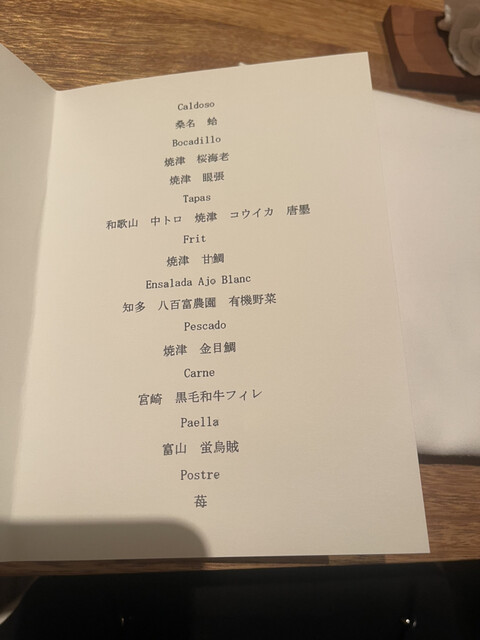 Caldoso
桑名　蛤
Bocadillo
焼津　桜海老
焼津　眼張
Tapas
和歌山　中トロ　焼津　コウイカ　唐墨
Frit
焼津　甘鯛
Ensalada Ajo Blanc
知多　八百富農園　有機野菜
Pescado
焼津　金目鯛
Carne
宮崎　黒毛和牛フィレ
Paella
富山　蛍烏賊
Postre
苺